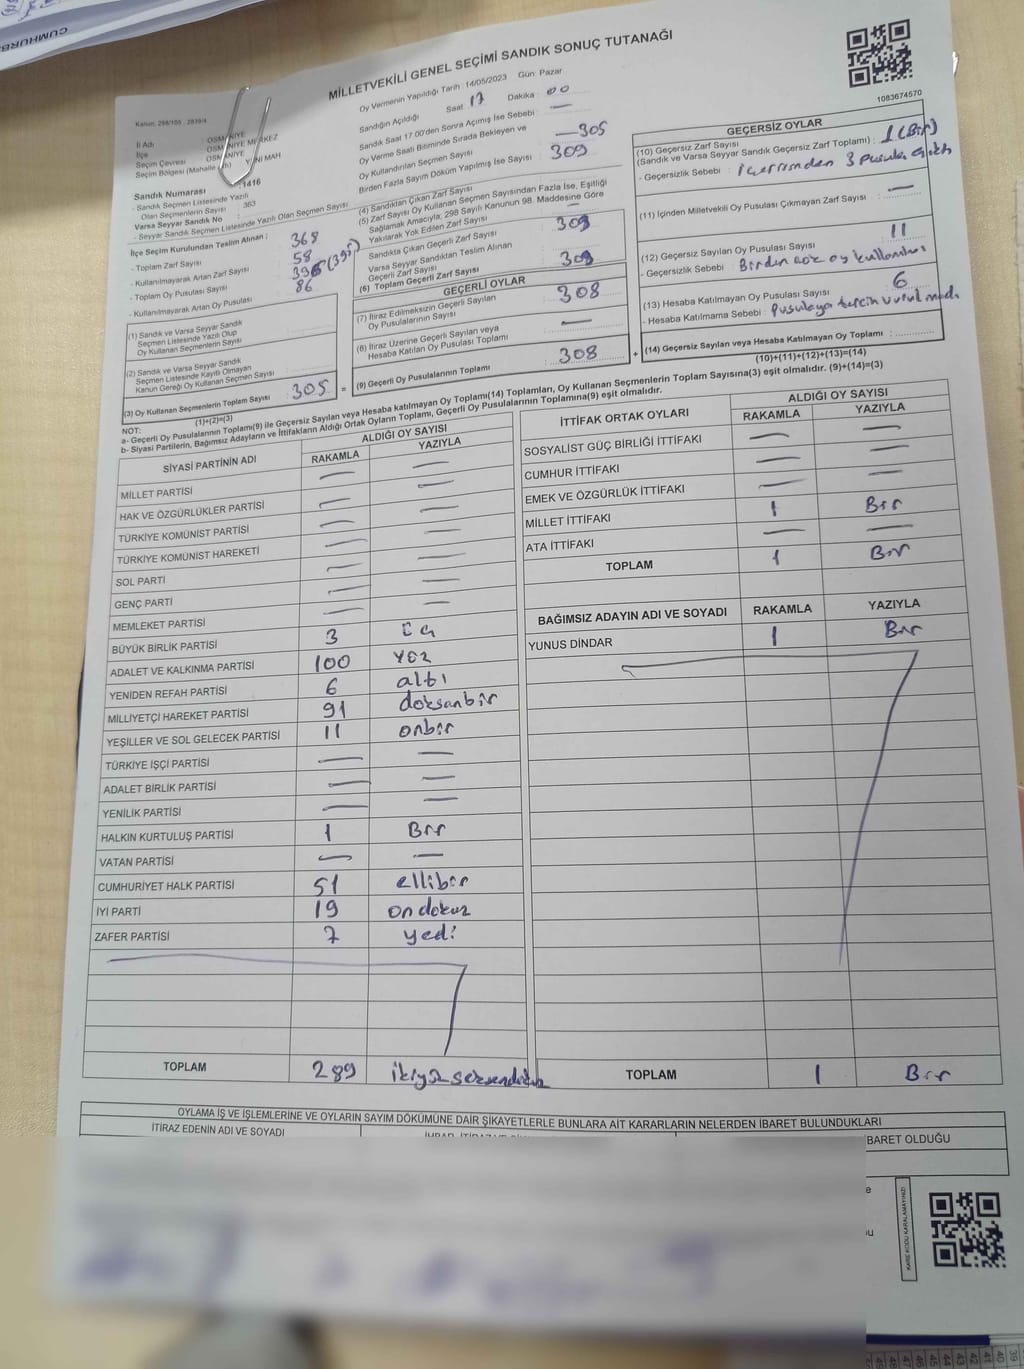 MİLLETVEKİLİ GENEL SEÇİMİ SANDIK SONUÇ TUTANAĞI
1083674570
Oy Vermenin Yapıldığı Tarih : 14/05/2023 Gün: Pazar
Sandığın Açıldığı Saat 17 Dakika : 00
Sandık Saat 17.00'den Sonra Açımış İse Sebebi : —
Oy Verme Saati Bitiminde Sırada Bekleyen ve
Oy Kullandırılan Seçmen Sayısı : —305
Birden Fazla Sayım Döküm Yapılmış İse Sayısı : 309
Kanun: 298/105
İl Adı : OSMANİYE
İlçe : OSMANİYE MERKEZ
Seçim Çevresi : OSMANİYE
Seçim Bölgesi (Mahalle MAH
Sandık Numarası : 1416
- Sandık Seçmen Listesinde Yazılı
Olan Seçmenlerin Sayısı : 363
Varsa Seyyar Sandık No :
- Seyyar Sandık Seçmen Listesinde Yazılı Olan Seçmen Sayısı
İlçe Seçim Kurulundan Teslim Alınan ;
- Toplam Zarf Sayısı : 368
- Kullanılmayarak Artan Zarf Sayısı : 58
- Toplam Oy Pusulası Sayısı
- Kullanılmayarak Artan Oy Pusulası : 86
(1) Sandık ve Varsa Seyyar Sandık
Seçmen Listesinde Yazılı Olup
Oy Kullanan Seçmenlerin Sayısı
(2) Sandık ve Varsa Seyyar Sandık
Seçmen Listesinde Kayıtlı Olmayan
Kanun Gereği Oy Kullanan Seçmen Sayısı
(3) Oy Kullanan Seçmenlerin Toplam Sayısı : 305
(1)+(2)=(3)
(4) Sandıktan Çıkan Zarf Sayısı
(5) Zarf Sayısı Oy Kullanan Seçmen Sayısından Fazla İse, Eşitliği
Sağlamak Amacıyla, 298 Sayılı Kanunun 98. Maddesine Göre
Yakılarak Yok Edilen Zarf Sayısı : —
Sandıkta Çıkan Geçerli Zarf Sayısı : 309
Varsa Seyyar Sandıktan Teslim Alınan
Geçerli Zarf Sayısı
(6) Toplam Geçerli Zarf Sayısı : 309
GEÇERLİ OYLAR
(7) İtiraz Edilmeksizin Geçerli Sayılan
Oy Pusulalarının Sayısı : 308
(8) İtiraz Üzerine Geçerli Sayılan veya
Hesaba Katılan Oy Pusulası Toplamı : —
(9) Geçerli Oy Pusulalarının Toplamı : 308
GEÇERSİZ OYLAR
(10) Geçersiz Zarf Sayısı
(Sandık ve Varsa Seyyar Sandık Geçersiz Zarf Toplamı) : 1 (Bir)
- Geçersizlik Sebebi : içerisinden 3 pusula çıktı
(11) İçinden Milletvekili Oy Pusulası Çıkmayan Zarf Sayısı : —
(12) Geçersiz Sayılan Oy Pusulası Sayısı : 11
- Geçersizlik Sebebi : Birden çok oy kullanılmış
(13) Hesaba Katılmayan Oy Pusulası Sayısı : 6
- Hesaba Katılmama Sebebi : pusulaya tercih vurulmadı
(14) Geçersiz Sayılan veya Hesaba Katılmayan Oy Toplamı :
(10)+(11)+(12)+(13)=(14)
NOT:
a- Geçerli Oy Pusulalarının Toplamı(9) ile Geçersiz Sayılan veya Hesaba katılmayan Oy Toplamı(14) Toplamları, Oy Kullanan Seçmenlerin Toplam Sayısına(3) eşit olmalıdır. (9)+(14)=(3)
b- Siyasi Partilerin, Bağımsız Adayların ve İttifakların Aldığı Ortak Oyların Toplamı, Geçerli Oy Pusulalarının Toplamına(9) eşit olmalıdır.
SİYASİ PARTİNİN ADI ALDIĞI OY SAYISI
RAKAMLA YAZIYLA
MİLLET PARTİSİ — —
HAK VE ÖZGÜRLÜKLER PARTİSİ — —
TÜRKİYE KOMÜNİST PARTİSİ — —
TÜRKİYE KOMÜNİST HAREKETİ — —
SOL PARTİ — —
GENÇ PARTİ — —
MEMLEKET PARTİSİ — —
BÜYÜK BİRLİK PARTİSİ 3 üç
ADALET VE KALKINMA PARTİSİ 100 yüz
YENİDEN REFAH PARTİSİ 6 altı
MİLLİYETÇİ HAREKET PARTİSİ 91 doksanbir
YEŞİLLER VE SOL GELECEK PARTİSİ 11 onbir
TÜRKİYE İŞÇİ PARTİSİ — —
ADALET BİRLİK PARTİSİ — —
YENİLİK PARTİSİ — —
HALKIN KURTULUŞ PARTİSİ 1 Bir
VATAN PARTİSİ — —
CUMHURİYET HALK PARTİSİ 51 ellibir
İYİ PARTİ 19 ondokuz
ZAFER PARTİSİ 7 yedi
TOPLAM 289 ikiyüzseksendokuz
İTTİFAK ORTAK OYLARI ALDIĞI OY SAYISI
RAKAMLA YAZIYLA
SOSYALİST GÜÇ BİRLİĞİ İTTİFAKI — —
CUMHUR İTTİFAKI — —
EMEK VE ÖZGÜRLÜK İTTİFAKI — —
MİLLET İTTİFAKI 1 Bir
ATA İTTİFAKI — —
TOPLAM 1 Bir
BAĞIMSIZ ADAYIN ADI VE SOYADI RAKAMLA YAZIYLA
YUNUS DİNDAR 1 Bir
TOPLAM 1 Bir
OYLAMA İŞ VE İŞLEMLERİNE VE OYLARIN SAYIM DÖKÜMÜNE DAİR ŞİKAYETLERLE BUNLARA AİT KARARLARIN NELERDEN İBARET BULUNDUKLARI
İTİRAZ EDENİN ADI VE SOYADI
İBARET OLDUĞU
KARE KODU KARALAMAYINIZ!